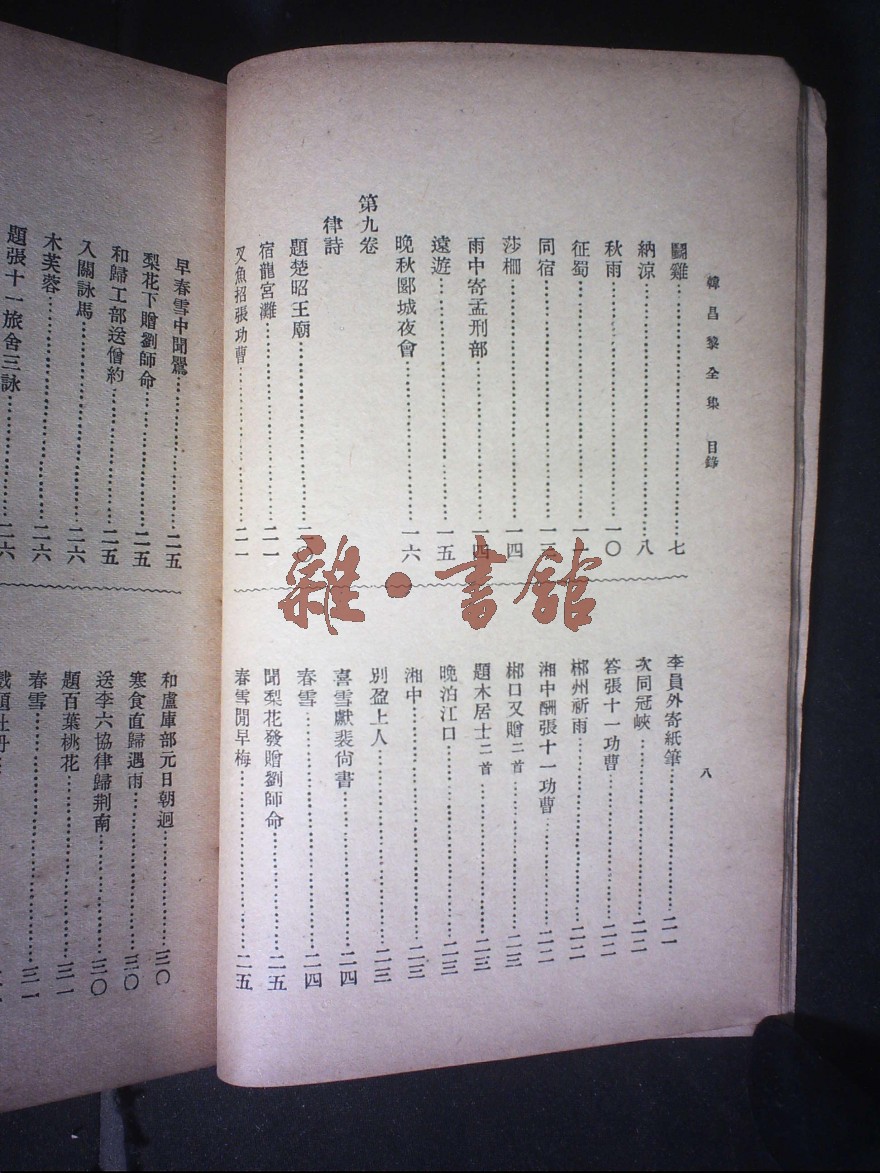 韓昌黎全集 目錄
八
鬬雞……七
納涼……八
秋雨……一〇
征蜀……一二
同宿……一三
莎柵……一四
雨中寄孟刑部……一四
遠遊……一五
晚秋郾城夜會……一六
第九卷
律詩
題楚昭王廟……二〇
宿龍宮灘……二一
叉魚招張功曹……二一
李員外寄紙筆……二一
次同冠峽……二二
答張十一功曹……二二
郴州祈雨……二二
湘中酬張十一功曹……二二
郴口又贈二首……二三
題木居士二首……二三
晚泊江口……二三
湘中……二三
別盈上人……二三
喜雪獻裴尙書……二四
春雪……二四
聞梨花發贈劉師命……二五
春雪閒早梅……二五
早春雪中聞鶯……二五
梨花下贈劉師命……二五
和歸工部送僧約……二五
入關詠馬……二六
木芙蓉……二六
題張十一旅舍三詠……二六
和盧庫部元日朝迴……三〇
寒食直歸遇雨……三〇
送李六協律歸荆南……三〇
題百葉桃花……三一
春雪……三一
雜·書館